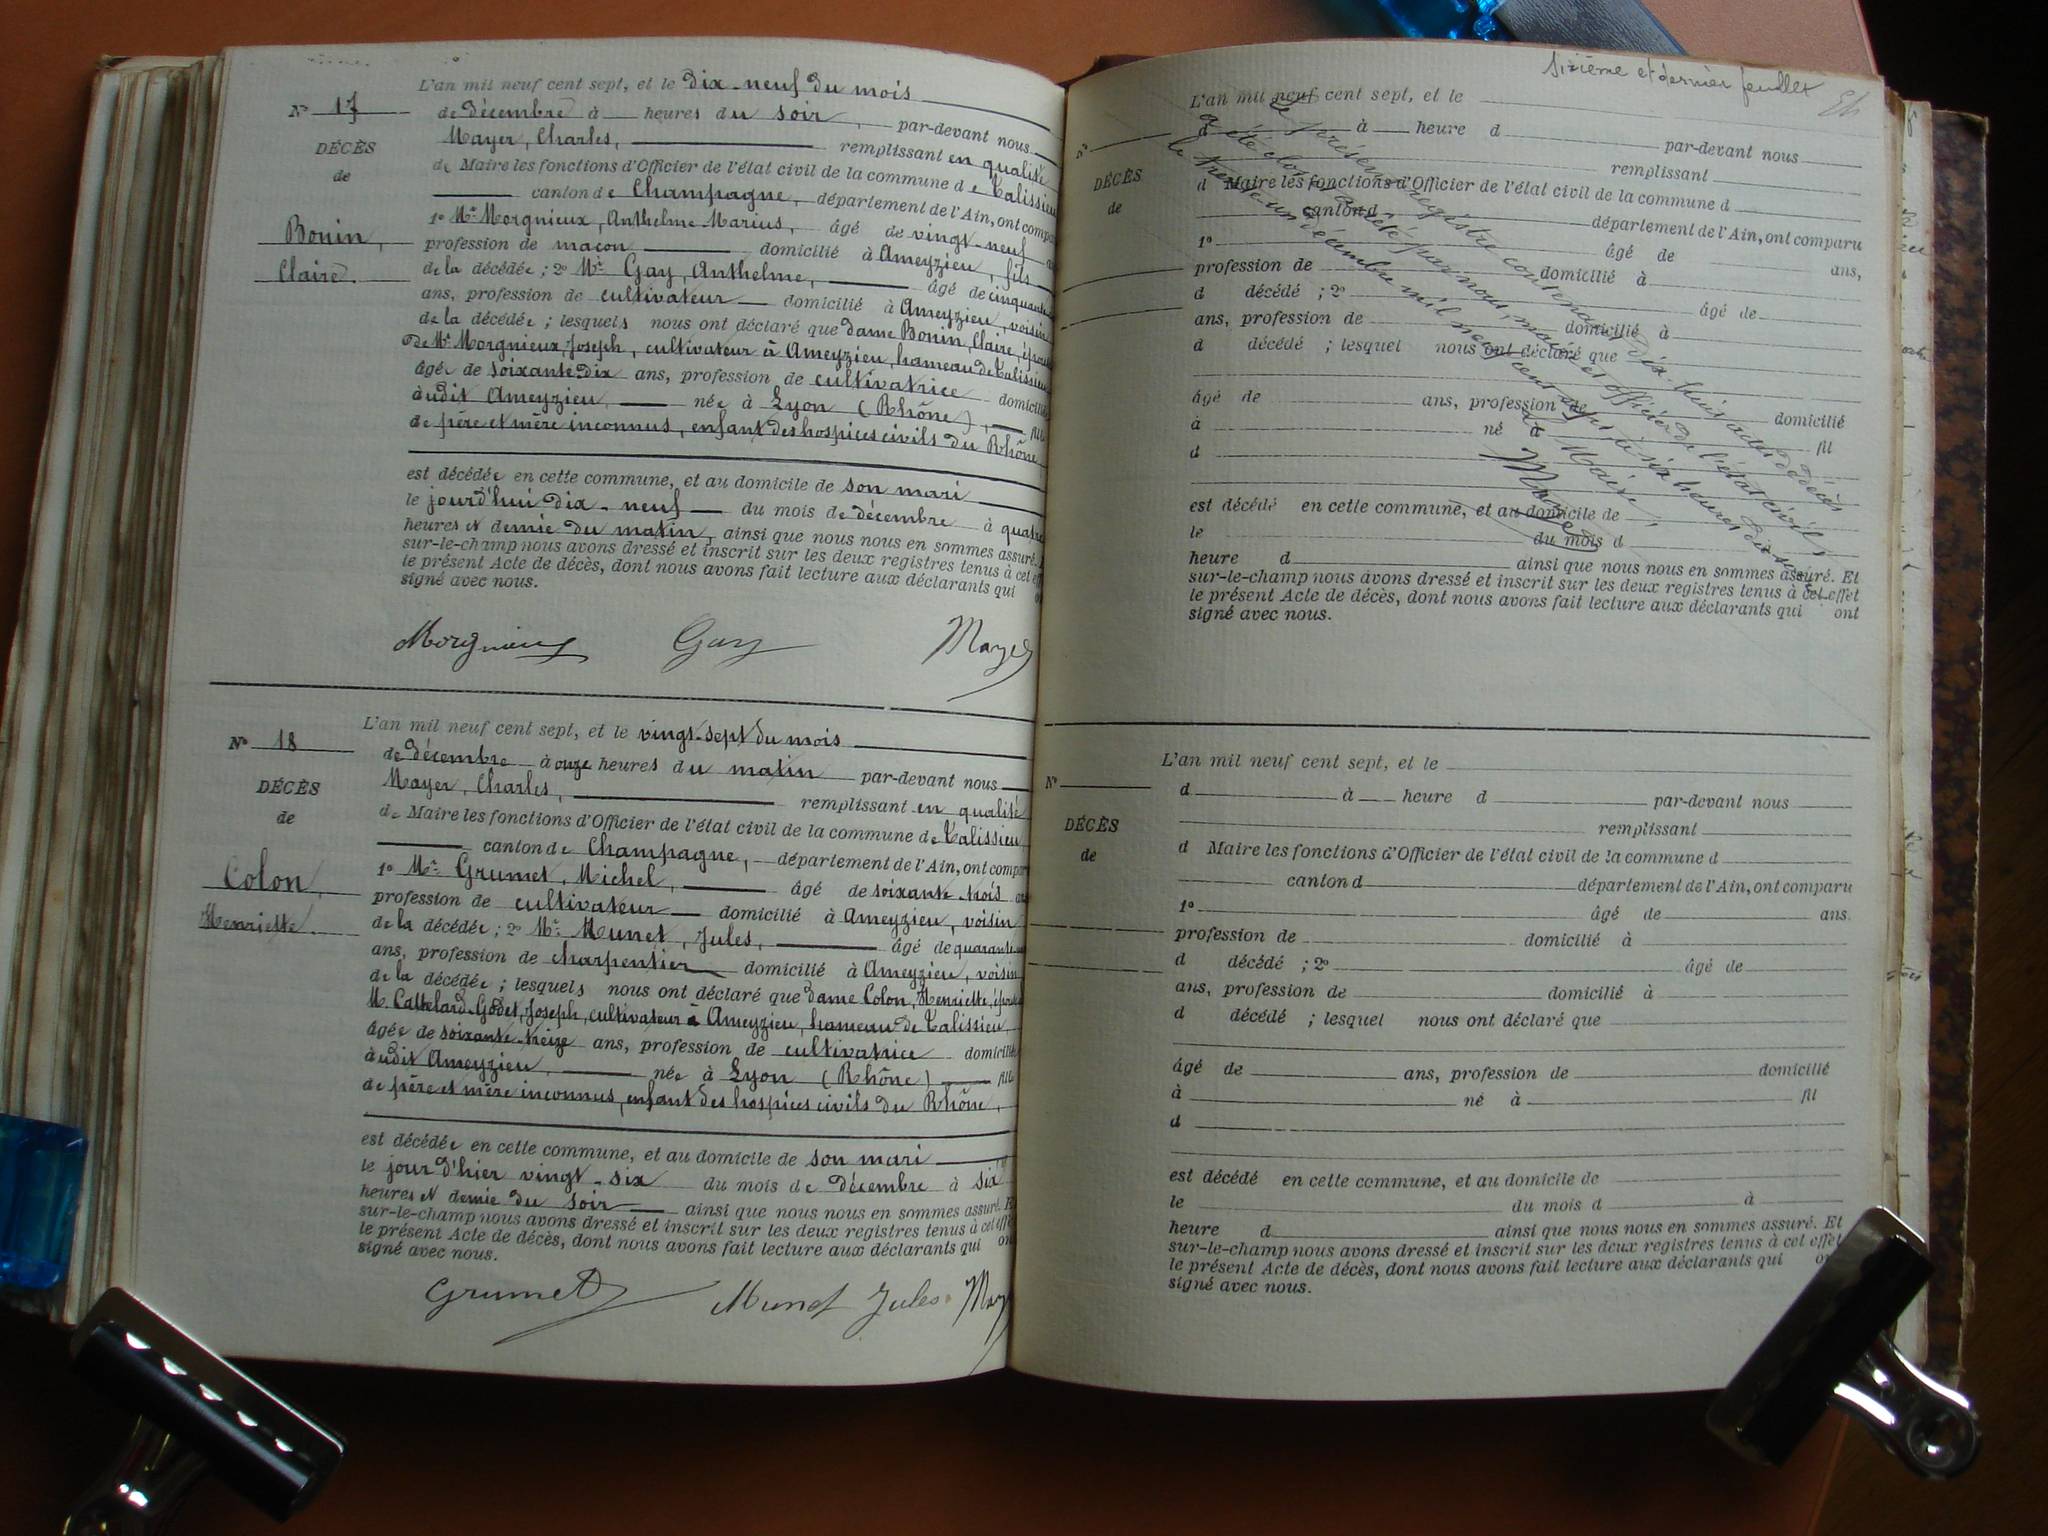 L'an mil neuf cent sept, et le dix-neuf du mois
N° 17
de décembre à heures du soir, par-devant nous
Mayer, Charles, remplissant en qualité
DÉCÈS
de Maire les fonctions d'Officier de l'état civil de la commune de Talissieu
de
canton de Champagne, département de l'Ain, ont compa
1° Mr Morgnieux, Anthelme Marius, âgé de vingt-neuf
Bonin,
profession de maçon domicilié à Ameyzieu, fils
Claire.
de la décédée; 2° Mr Gay, Anthelme, âgé de cinquante
ans, profession de cultivateur domicilié à Ameyzieu, voisin
de la décédée; lesquels nous ont déclaré que dame Bonin, Claire, épouse
de Mr Morgnieux, Joseph, cultivateur à Ameyzieu, hameau de Talissieu
âgée de soixante-dix ans, profession de cultivatrice domiciliée
audit Ameyzieu, née à Lyon (Rhône), fille
de père et mère inconnus, enfant des hospices civils du Rhône
est décédée en cette commune, et au domicile de son mari
le jourd'hui dix-neuf du mois de décembre à quatre
heures et demie du matin, ainsi que nous nous en sommes assuré. E
sur-le-champ nous avons dressé et inscrit sur les deux registres tenus à cet eff
le présent Acte de décès, dont nous avons fait lecture aux déclarants qui o
signé avec nous.
Morgnieux Gay Mayer
L'an mil neuf cent sept, et le vingt-sept du mois
N° 18
de décembre à onze heures du matin par-devant nous
Mayer, Charles, remplissant en qualité
DÉCÈS
de Maire les fonctions d'Officier de l'état civil de la commune de Talissieu
de
canton de Champagne, département de l'Ain, ont compar
1° Mr Grumet, Michel, âgé de soixante-trois an
Colon,
profession de cultivateur domicilié à Ameyzieu, voisin
Henriette.
de la décédée; 2° Mr Munet, Jules, âgé de quarante
ans, profession de charpentier domicilié à Ameyzieu, voisin
de la décédée; lesquels nous ont déclaré que dame Colon, Henriette, épouse
M. Cattelard-Godet, Joseph, cultivateur à Ameyzieu, hameau de Talissieu,
âgée de soixante-treize ans, profession de cultivatrice domiciliée
audit Ameyzieu, née à Lyon (Rhône) fille
de père et mère inconnus, enfant des hospices civils du Rhône,
est décédée en cette commune, et au domicile de son mari
le jour d'hier vingt-six du mois de décembre à six
heures et demie du soir ainsi que nous nous en sommes assuré. E
sur-le-champ nous avons dressé et inscrit sur les deux registres tenus à cet effe
le présent Acte de décès, dont nous avons fait lecture aux déclarants qui on
signé avec nous.
Grumet Munet Jules May
Sixième et dernier feuillet
L'an mil neuf cent sept, et le
N°
d à heure d par-devant nous
remplissant
DÉCÈS
d Maire les fonctions d'Officier de l'état civil de la commune d
de
canton d département de l'Ain, ont comparu
1° âgé de ans,
profession de domicilié à
d décédé ; 2° âgé de
ans, profession de domicilié à
d décédé ; lesquel nous ont déclaré que
âgé de ans, profession de domicilié
à né à fil
d
est décédé en cette commune, et au domicile de
le du mois d
heure d ainsi que nous nous en sommes assuré. Et
sur-le-champ nous avons dressé et inscrit sur les deux registres tenus à cet effet
le présent Acte de décès, dont nous avons fait lecture aux déclarants qui ont
signé avec nous.
Le présent registre contenant dix-huit actes de décès
a été clos et arrêté par nous, maire et officier de l'état civil
le trente-un décembre mil neuf cent sept à six heures du soir.
Le Maire,
Mayer
L'an mil neuf cent sept, et le
N°
d à heure d par-devant nous
remplissant
DÉCÈS
d Maire les fonctions d'Officier de l'état civil de la commune d
de
canton d département de l'Ain, ont comparu
1° âgé de ans.
profession de domicilié à
d décédé ; 2° âgé de
ans, profession de domicilié à
d décédé ; lesquel nous ont déclaré que
âgé de ans, profession de domicilié
à né à fil
d
est décédé en cette commune, et au domicile de
le du mois d à
heure d ainsi que nous nous en sommes assuré. Et
sur-le-champ nous avons dressé et inscrit sur les deux registres tenus à cet effet
le présent Acte de décès, dont nous avons fait lecture aux déclarants qui o
signé avec nous.